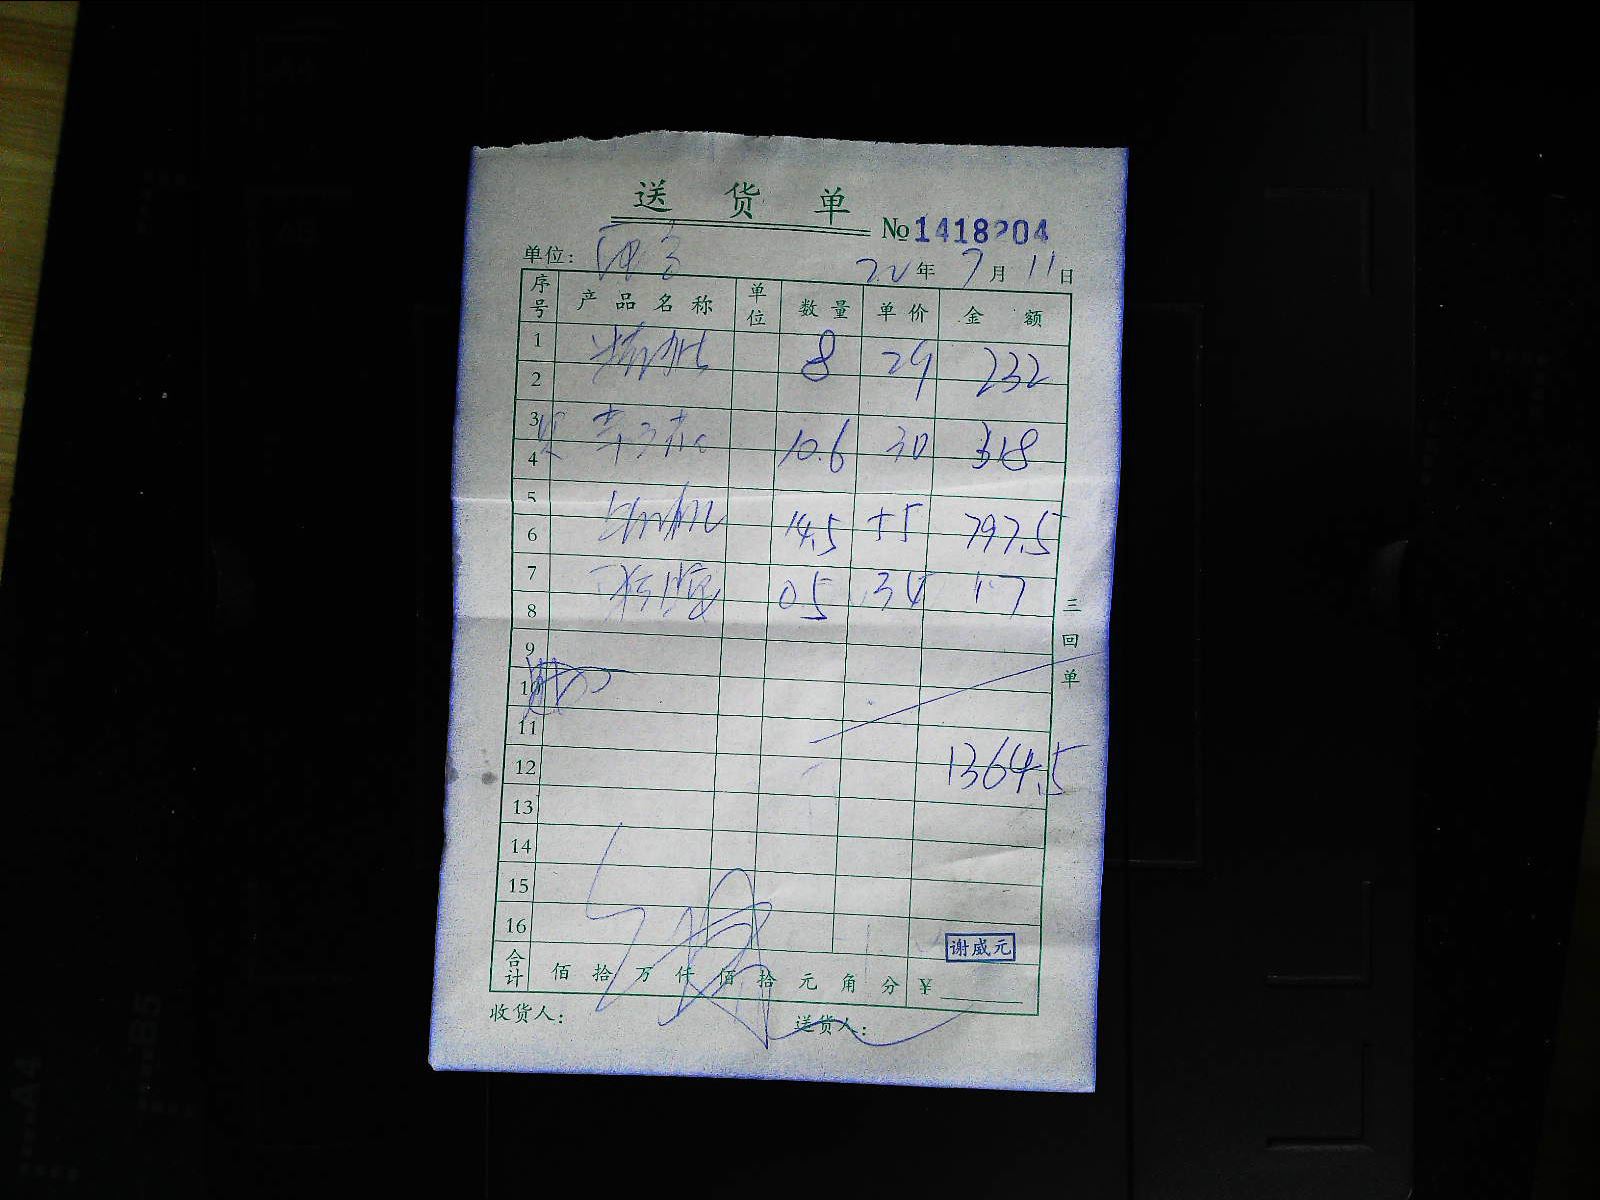 送 货 单
No 1418204
单位:
22年 7月 11日
序号 产品名称 单位 数量 单价 金额
1 8 29 232
2
3 10.6 30 318
4
5 14.5 55 797.5
6
7 0.5 34 17
8
9
10
11
12 1364.5
13
14
15
16
谢威元
合计 佰 拾 万 仟 佰 拾 元 角 分 ¥
收货人: 送货人:
三回单